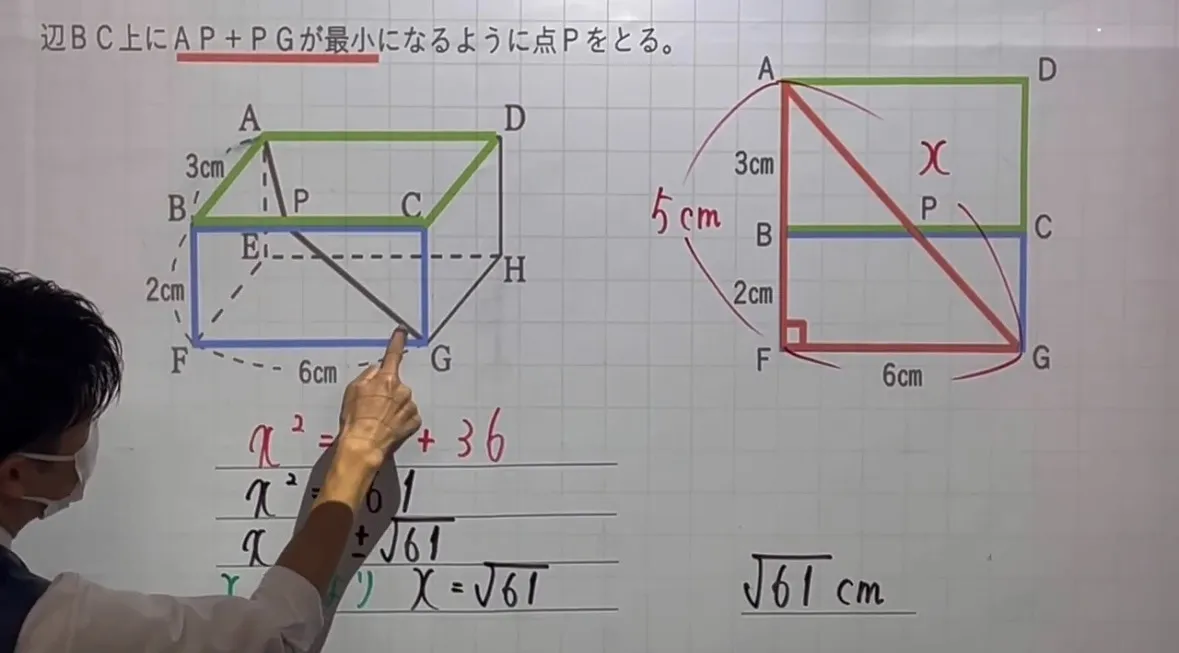 辺BC上にAP+PGが最小になるように点Pをとる。
A
D
3cm
B
P
C
E
H
2cm
F
G
6cm
A
D
3cm
x
5cm
P
B
C
2cm
F
G
6cm
x² = + 36
x² = 61
x ±√61
x = √61
√61 cm